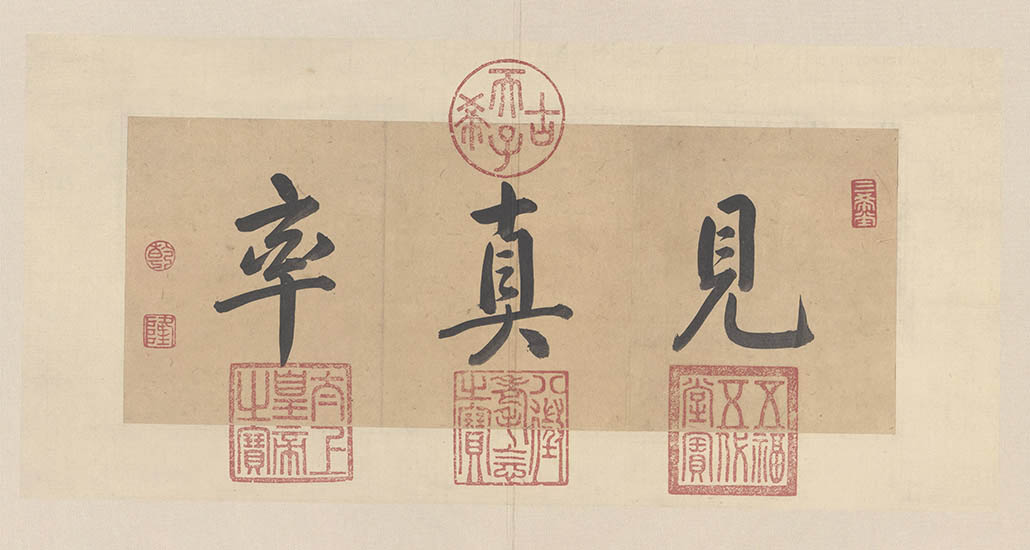 見真率
古稀天子
三希堂
乾
隆
五福五代堂寶
八徵耄念之寶
太上皇帝之寶